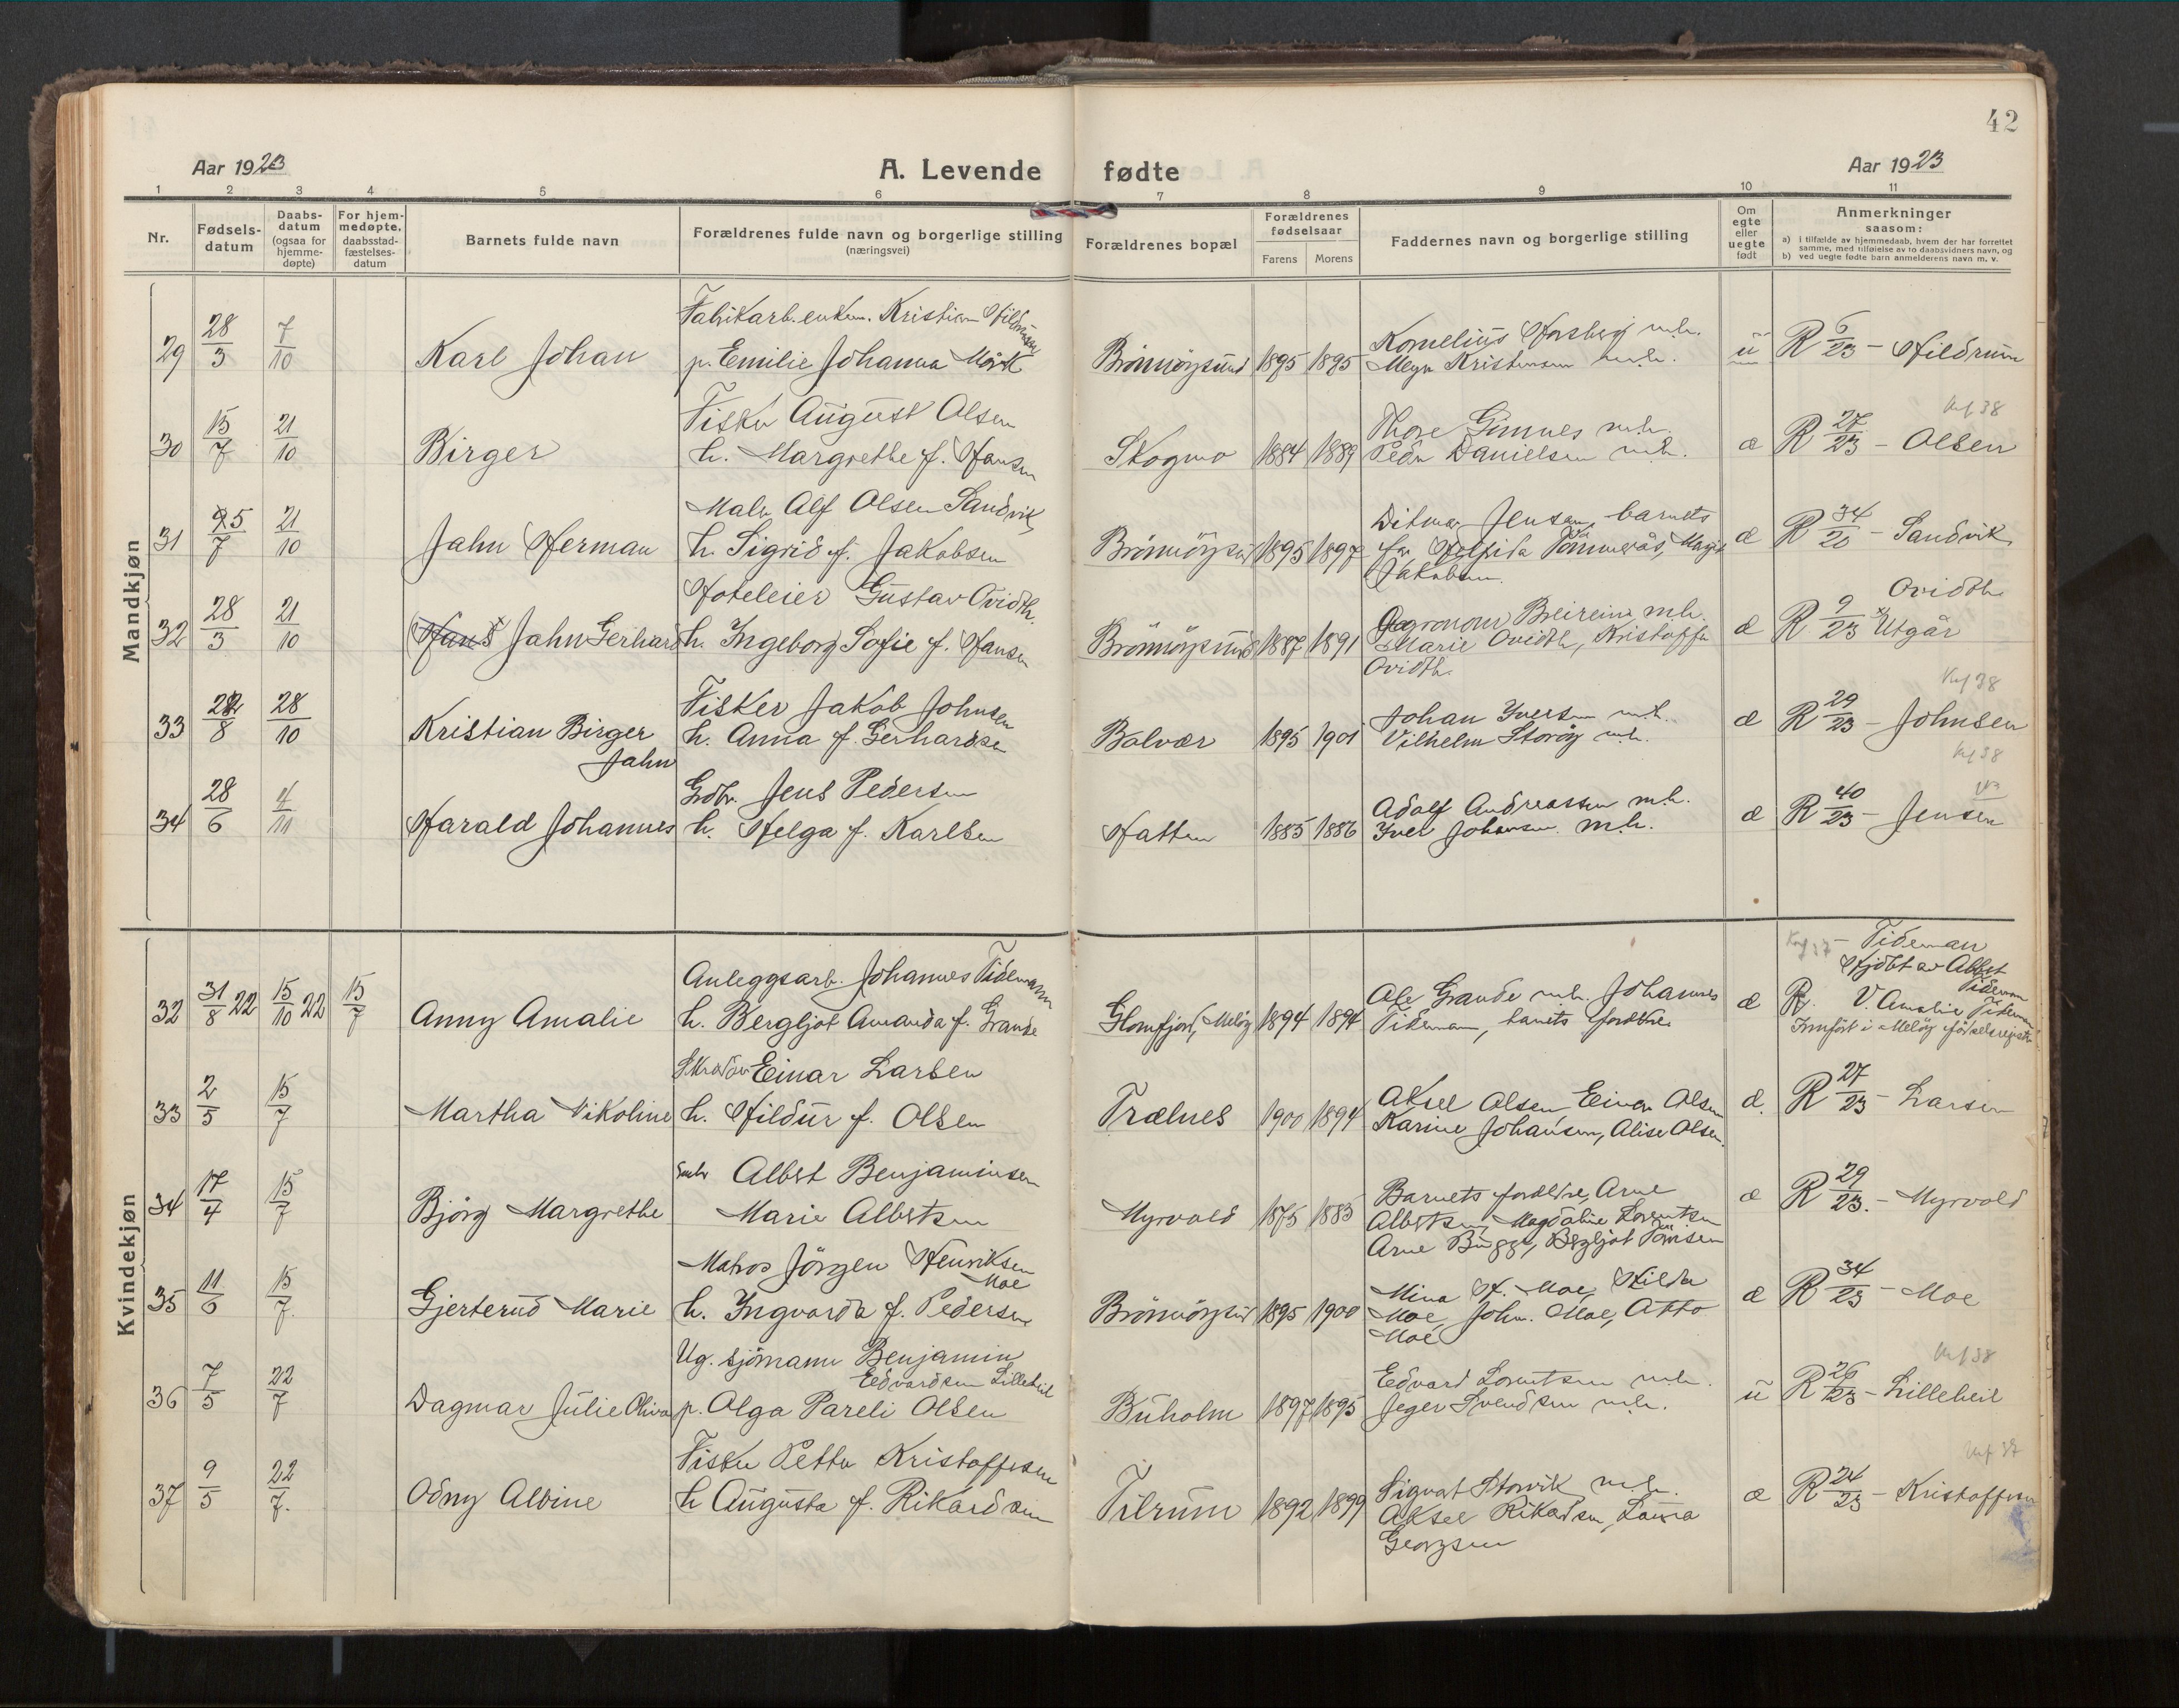 42
Aar 1923
A. Levende fødte
Aar 1923
1 2 3 4 5 6 7 8 9 10 11
Nr.
Fødsels-
datum
Daabs-
datum
(ogsaa for
hjemme-
døpte)
For hjem-
medøpte,
daabsstad-
fæstelses-
datum
Barnets fulde navn
Forældrenes fulde navn og borgerlige stilling
(næringsvei)
Forældrenes bopæl
Forældrenes
fødselsaar
Farens Morens
Faddernes navn og borgerlige stilling
Om
egte
eller
uegte
født
Anmerkninger
saasom:
a) i tilfælde av hjemmedaab, hvem der har forrettet
samme, med tilføielse av to daabsvidners navn, og
b) ved uegte fødte barn anmelderens navn m. v.
Mandkjøn
Fabrikarb. enkem. Kristian Hildrum
29 28/3 7/10 Karl Johan p. Emilie Johanna Mørk Brønnøysund 1895 1895 Kornelius Forsberg m.h.
Kristensen m.h. u R 6/23 - Hildrum
Fisker August Olsen Kf 38
30 15/7 21/10 Birger h. Margrethe f. Hansen Skogmo 1884 1889 Thore Gimnes m.h.
Peder Danielsen m.h. æ R 27/23 - Olsen
Maler Alf Olsen Sandvik
31 25/7 21/10 Jahn Herman h. Sigrid f. Jakobsen Brønnøysund 1895 1897 Ditmar Jensen, barnets
far, Tømmerås, Margit
Jakobsen. æ R 34/20 - Sandvik
Hoteleier Gustav Ovidth. Ovidth
32 28/3 21/10 Hans Jahn Gerhard h. Ingeborg Sofie f. Hansen Brønnøysund 1887 1891 Agronom Breirem m.h.
Marie Ovidth, Kristoffer
Ovidth. æ R 9/23 Utgår
Fisker Jakob Johnsen Kf 38
33 22/8 28/10 Kristian Birger
Jahn h. Anna f. Gerhardsen Bolvær 1895 1901 Johan Iversen m.h.
Vilhelm Storøy m.h. æ R 29/23 - Johnsen
Grdbr. Jens Pedersen Kf 38
34 28/6 4/11 Harald Johannes h. Helga f. Karlsen Hatten 1885 1886 Adolf Andreassen m.h.
Iver Johansen m.h. æ R 40/23 - Jensen
Kvindekjøn
Kf 37 - Tideman
Anleggsarb. Johannes Tidemann
32 31/8 22 15/10 22 15/7 Anny Amalie h. Bergljot Amanda f. Grande Glomfjord, Meløy 1894 1894 Ole Grande m.h. Johannes
Tidemann, barnets foreldre æ R. Hjdøbt av Albert
Tideman
V. Amalie Tideman
Innført i Meløy fødselsregister
Skrædder Einar Larsen
33 2/5 15/7 Martha Nikoline h. Hildur f. Olsen Trælnes 1900 1894 Aksel Olsen, Einar Olsen
Karine Johansen, Alise Olsen. æ. R 27/23 - Larsen
Albert Benjaminsen
34 17/4 15/7 Bjørg Margrethe Marie Albertsen Myrvold 1875 1883 Barnets foreldre, Arne
Albertsen, Magdaline Lorentsen
Arne Bugge, Bergljot Tønnesen æ R 29/23. - Myrvold
Matros Jørgen Henriksen
Moe
35 11/6 15/7. Gjerterud Marie h. Ingvarda f. Pedersen Brønnøysund 1895 1900 Mina H. Moe, Hilda
Moe, Joh. Moe, Otto
Moe æ R 34/23 - Moe
Ug. sjømann Benjamin
Edvardsen Lilleheil Kf 38
36 7/5 22/7 Dagmar Julie Oliva p. Olga Pareli Olsen Buholm 1897 1895 Edvard Lorentsen m.h.
Jeger Svendsen m.h. u R 26/23 - Lilleheil
Fisker Petter Kristoffersen Kf 37
37 9/5 22/7. Odny Albine h Augusta f. Rikardsen Tilrum 1892 1899 Sigvat Storvik m.h.
Aksel Rikardsen, Laura
Georgsen æ R 24/23 - Kristoffersen